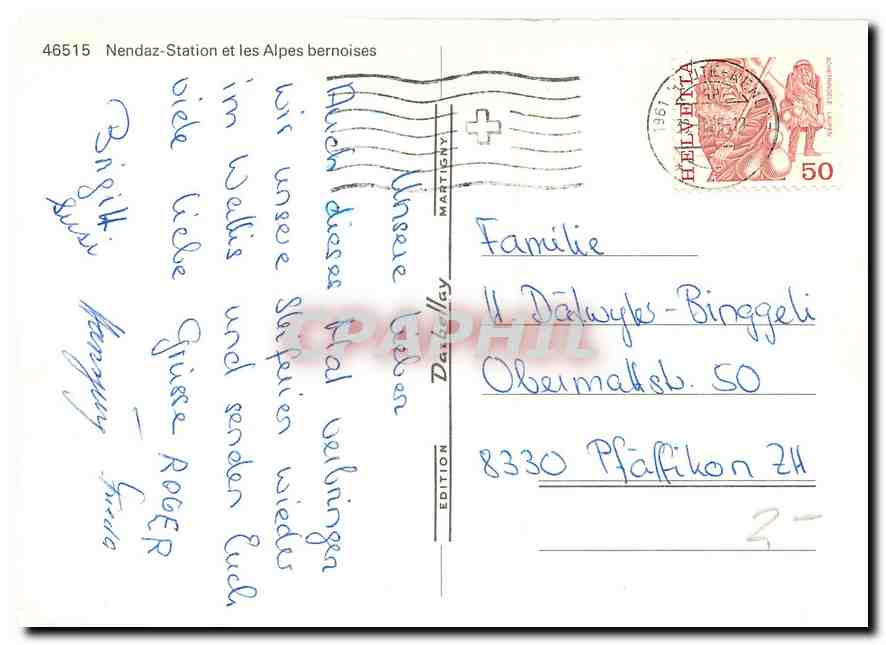 46515 Nendaz-Station et les Alpes bernoises
Unsere Lieben
Auch dieses Mal verbringen
wir unsere Skiferien wieder
im Wallis und senden Euch
viele liebe Grüsse ROGER
Brigitt
Susi
EDITION Darbellay MARTIGNY
1961 HAUTE-NENDAZ
HELVETIA
ACHETRINGELE LAUPEN
50
Familie
Dälwyler-Binggeli
Obermattstr. 50
8330 Pfäffikon ZH
2.-
CPAPHIL